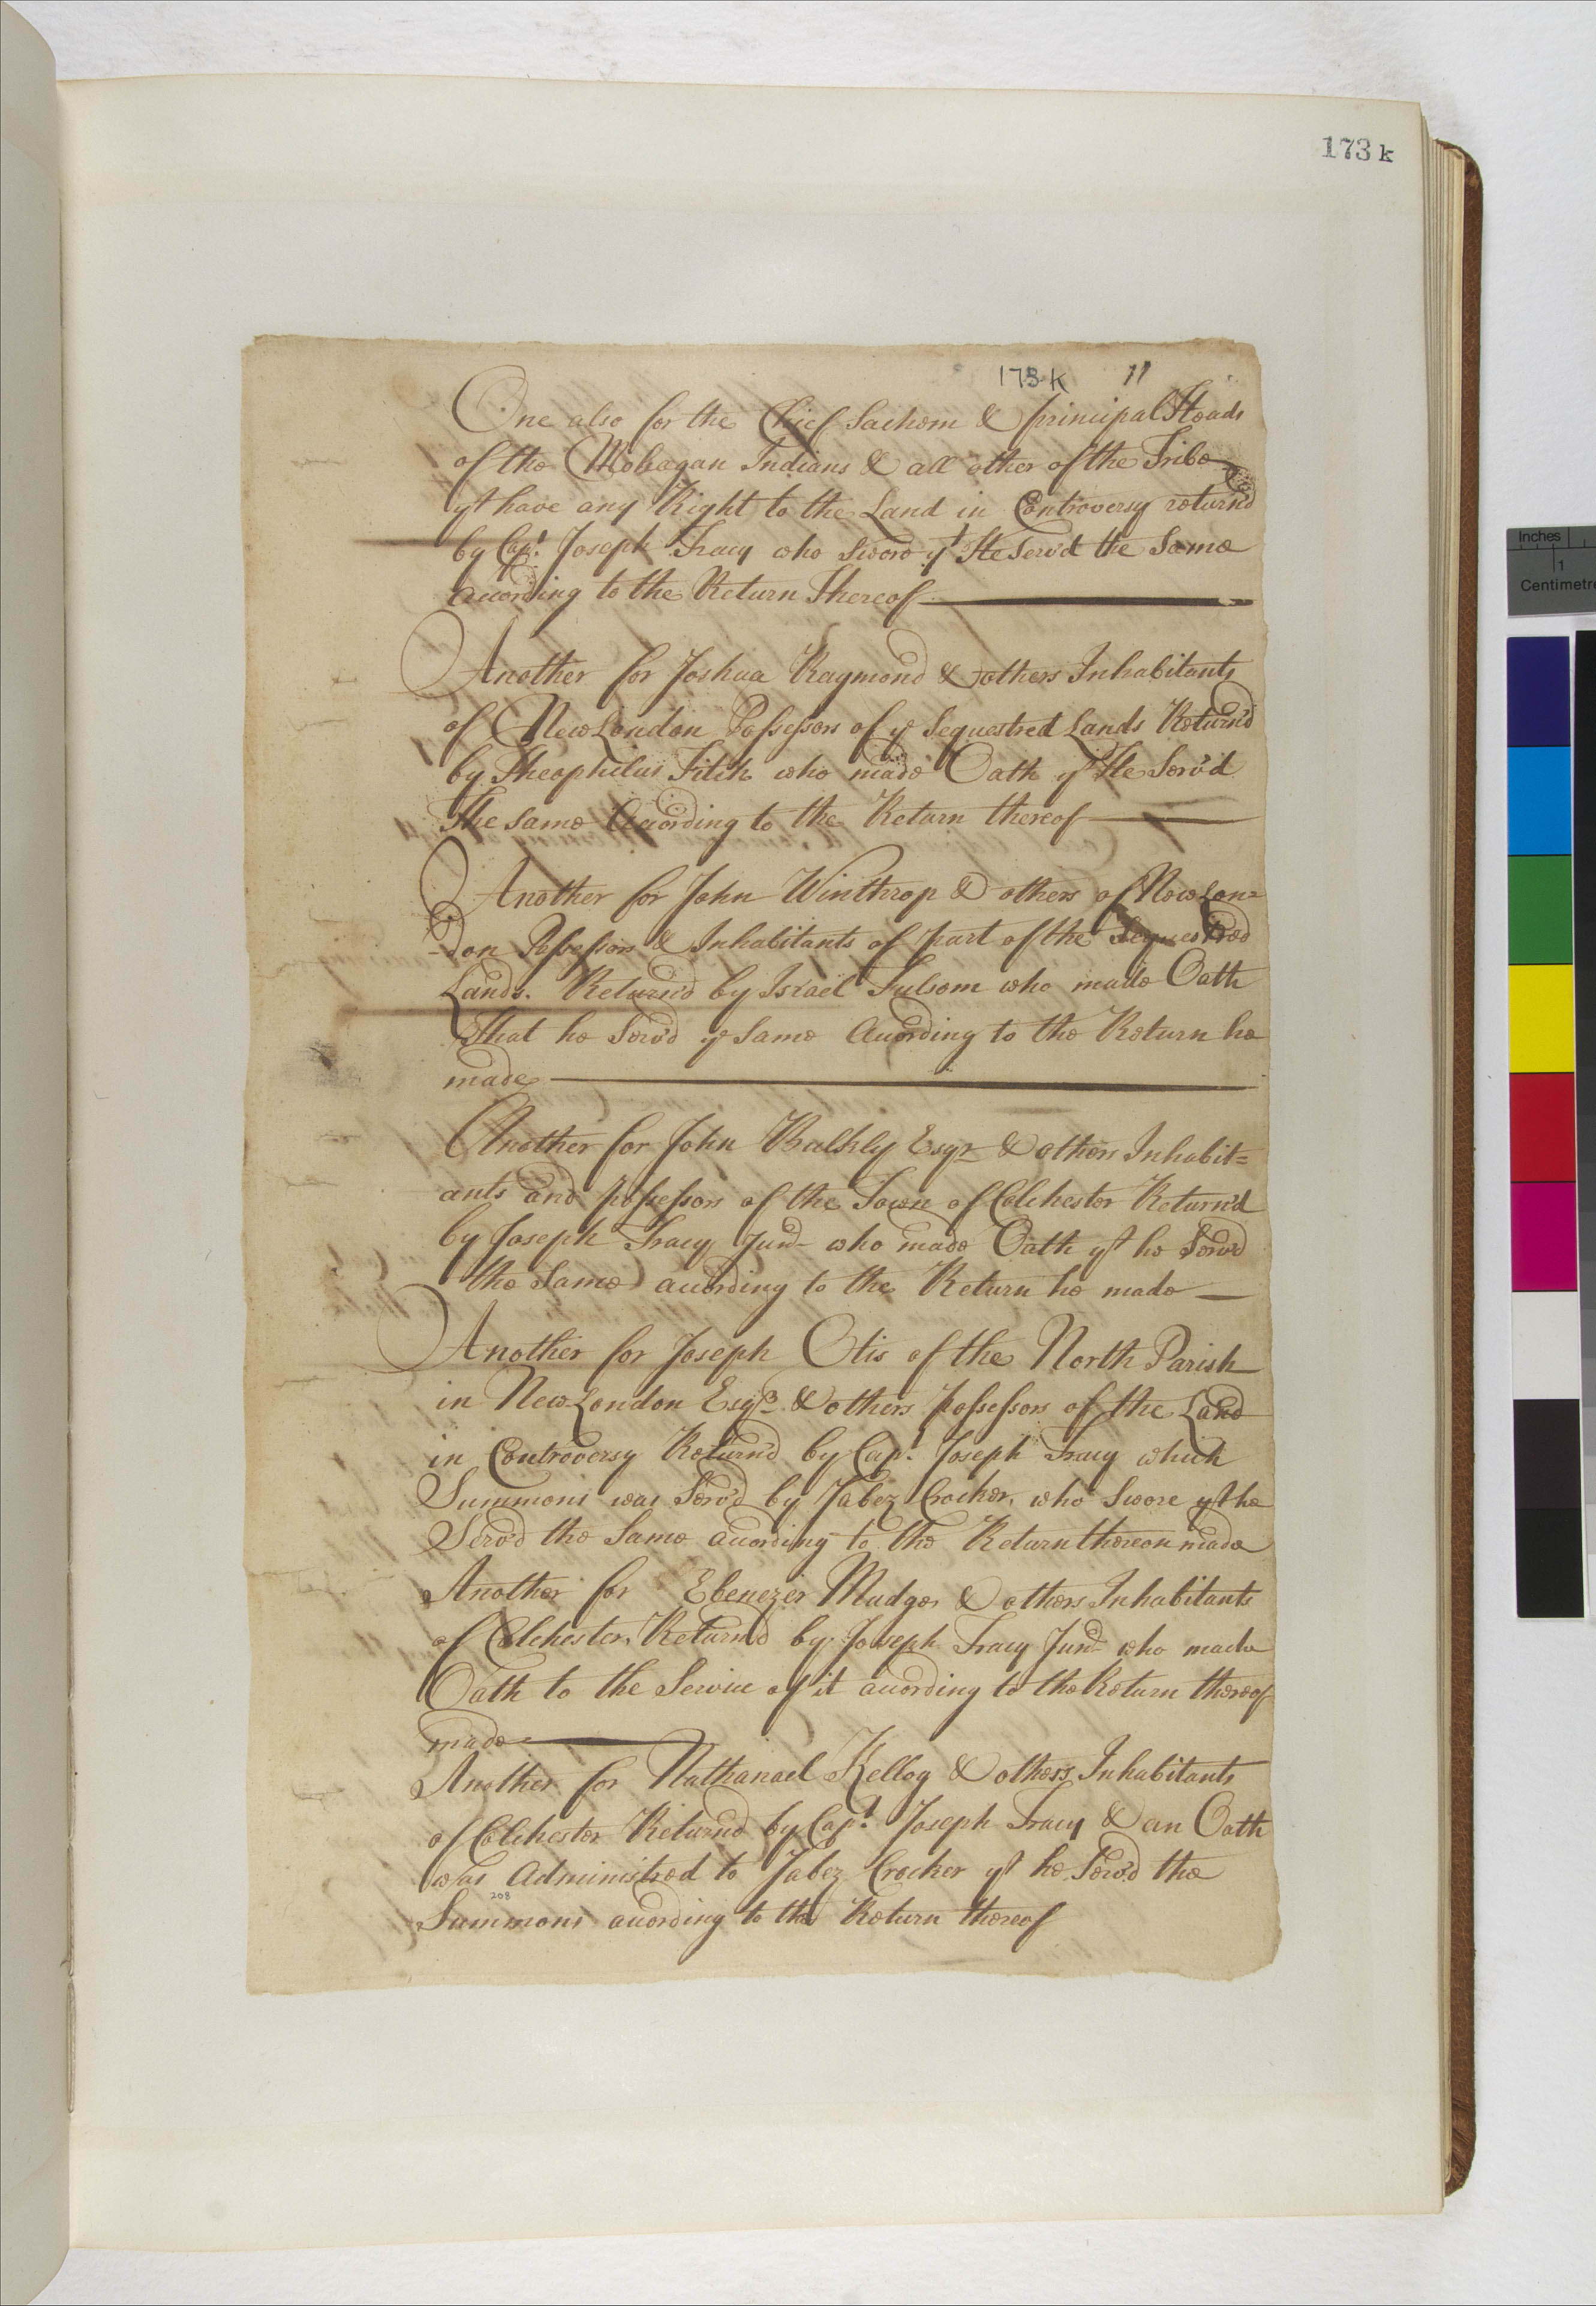 173 k
173 k 11
One also for the Chief Sachem & principal Heads
of the Mohagan Indians & all other of the Tribe
yt have any Right to the Land in Controversy return'd
by Capt. Joseph Tracy who Swore yt He Serv'd the Same
according to the Return Thereof
Another for Joshua Raymond & others Inhabitants
of New London Possessors of ye Sequestred Lands Return'd
by Theophilus Fitch who made Oath yt He Serv'd
The same According to the Return thereof
Another for John Winthrop & others of New Lon=
-don Possessors & Inhabitants of part of the Sequestred
Lands. Return'd by Israel Fulsom who made Oath
That he Serv'd ye Same According to the Return he
made
Another for John Bulkly Esqr & others Inhabit=
ants and possessors of the Town of Colchester Return'd
by Joseph Tracy Junr who made Oath yt he Serv'd
the Same according to the Return he made
Another for Joseph Otis of the North Parish
in New London Esqr & others possessors of the Land
in Controversy Return'd by Capt. Joseph Tracy which
Summons was Serv'd by Jabez Crocker, who Swore yt he
Serv'd the Same according to the Return thereon made
Another for Ebenezer Mudge & others Inhabitants
of Colchester, Return'd by Joseph Tracy Junr who made
Oath to the Service of it according to the Return thereof
made
Another for Nathanael Kellog & others Inhabitants
of Colchester Return'd by Capt. Joseph Tracy & an Oath
was Administred to Jabez Crocker yt he Serv'd the
208
Summons according to the Return thereof
Inches
1
Centimetre